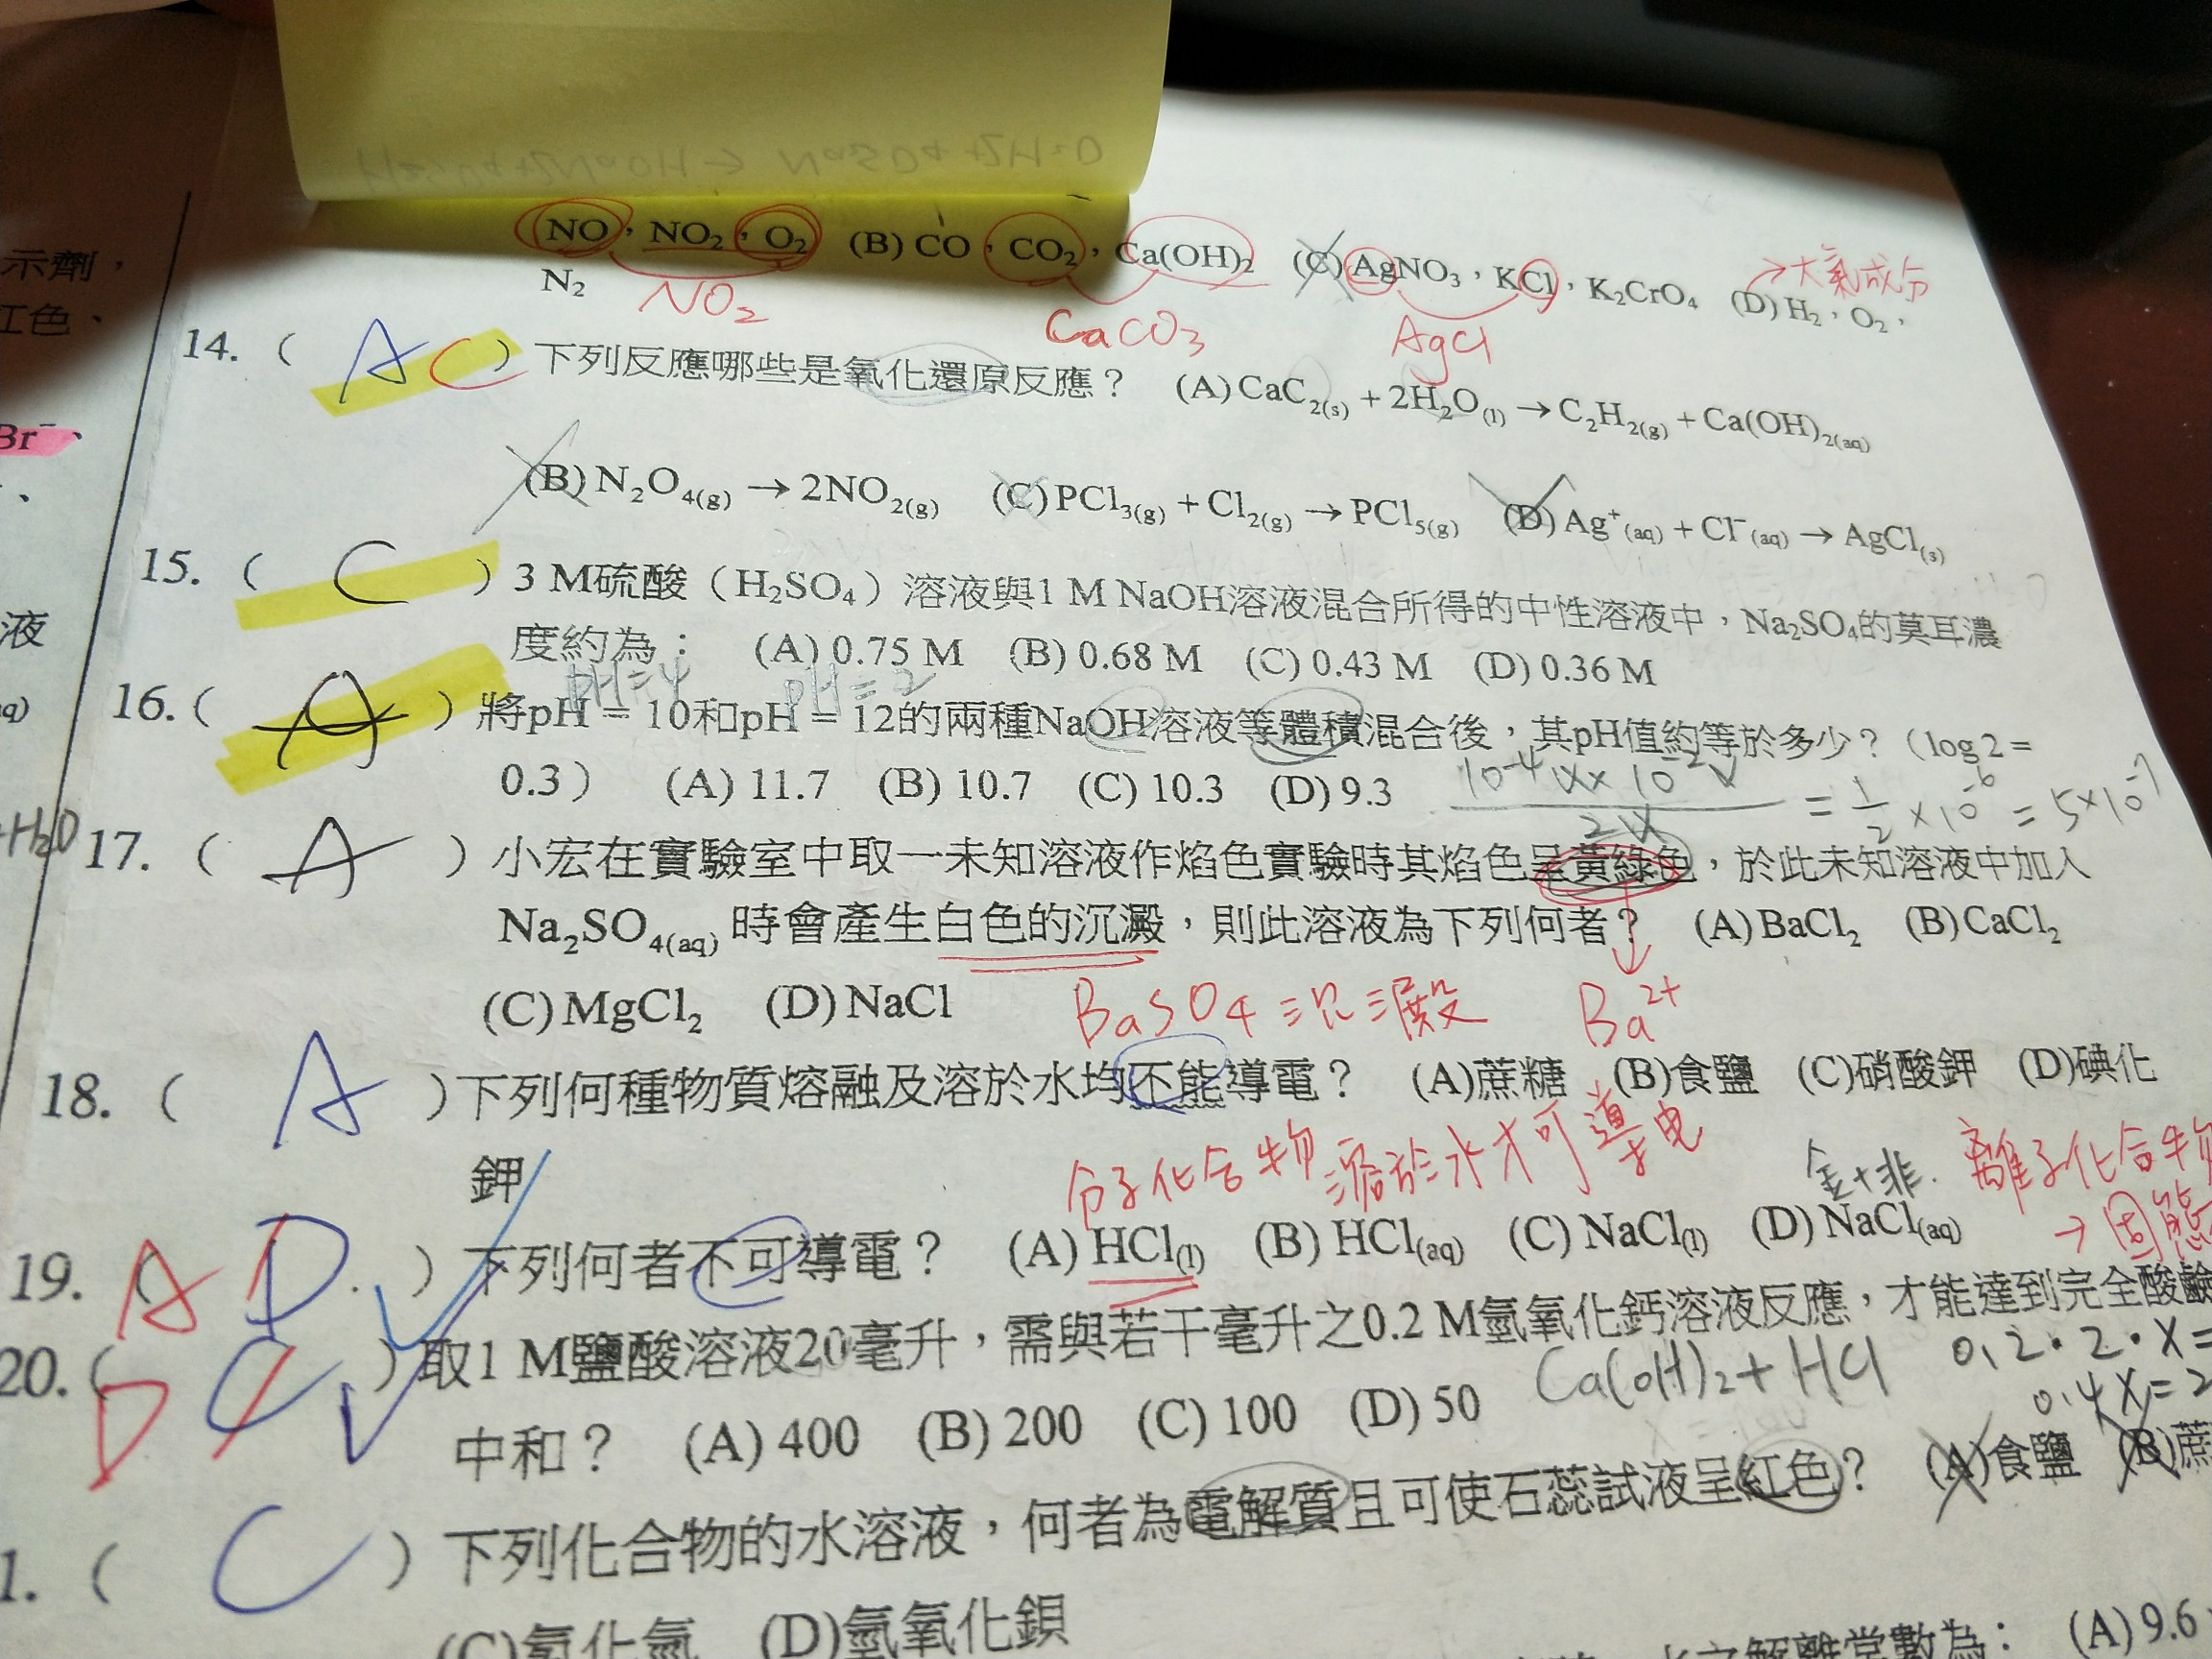 H₂SO₄+2NaOH → Na₂SO₄+2H₂O
示劑，
紅色、
Br⁻、
液
+H₂O
NO，NO₂，O₂ (B) CO，CO₂，Ca(OH)₂ (C) AgNO₃，KCl，K₂CrO₄ (D) H₂，O₂，
→大氣成分
N₂
NO₂
CaCO₃
AgCl
14. ( A C ) 下列反應哪些是氧化還原反應？ (A) CaC₂(s) + 2H₂O(l) → C₂H₂(g) + Ca(OH)₂(aq)
(B) N₂O₄(g) → 2NO₂(g) (C) PCl₃(g) + Cl₂(g) → PCl₅(g) (D) Ag⁺(aq) + Cl⁻(aq) → AgCl(s)
15. ( C ) 3 M硫酸（H₂SO₄）溶液與1 M NaOH溶液混合所得的中性溶液中，Na₂SO₄的莫耳濃
度約為： (A) 0.75 M (B) 0.68 M (C) 0.43 M (D) 0.36 M
pH=4 pH=2
16. ( A ) 將pH = 10和pH = 12的兩種NaOH溶液等體積混合後，其pH值約等於多少？（log 2 =
0.3） (A) 11.7 (B) 10.7 (C) 10.3 (D) 9.3
10⁻⁴V × 10⁻²V / 2V = 1/2 × 10⁻⁶ = 5×10⁻⁷
17. ( A ) 小宏在實驗室中取一未知溶液作焰色實驗時其焰色呈黃綠色，於此未知溶液中加入
Na₂SO₄(aq) 時會產生白色的沉澱，則此溶液為下列何者？ (A) BaCl₂ (B) CaCl₂
(C) MgCl₂ (D) NaCl
BaSO₄沉澱 Ba²⁺
18. ( A ) 下列何種物質熔融及溶於水均不能導電？ (A)蔗糖 (B)食鹽 (C)硝酸鉀 (D)碘化
鉀
分子化合物 溶於水才可導电
金+非. 離子化合物
→固態
19. ( A D ) 下列何者不可導電？ (A) HCl(l) (B) HCl(aq) (C) NaCl(l) (D) NaCl(aq)
20. ( D C ) 取1 M鹽酸溶液20毫升，需與若干毫升之0.2 M氫氧化鈣溶液反應，才能達到完全酸鹼
中和？ (A) 400 (B) 200 (C) 100 (D) 50
Ca(OH)₂+HCl
0.2·2·X=
0.4X=2
1. ( C ) 下列化合物的水溶液，何者為電解質且可使石蕊試液呈紅色？ (A)食鹽 (B)蔗
(C)氯化氫 (D)氫氧化鋇
水之解離常數為： (A) 9.6